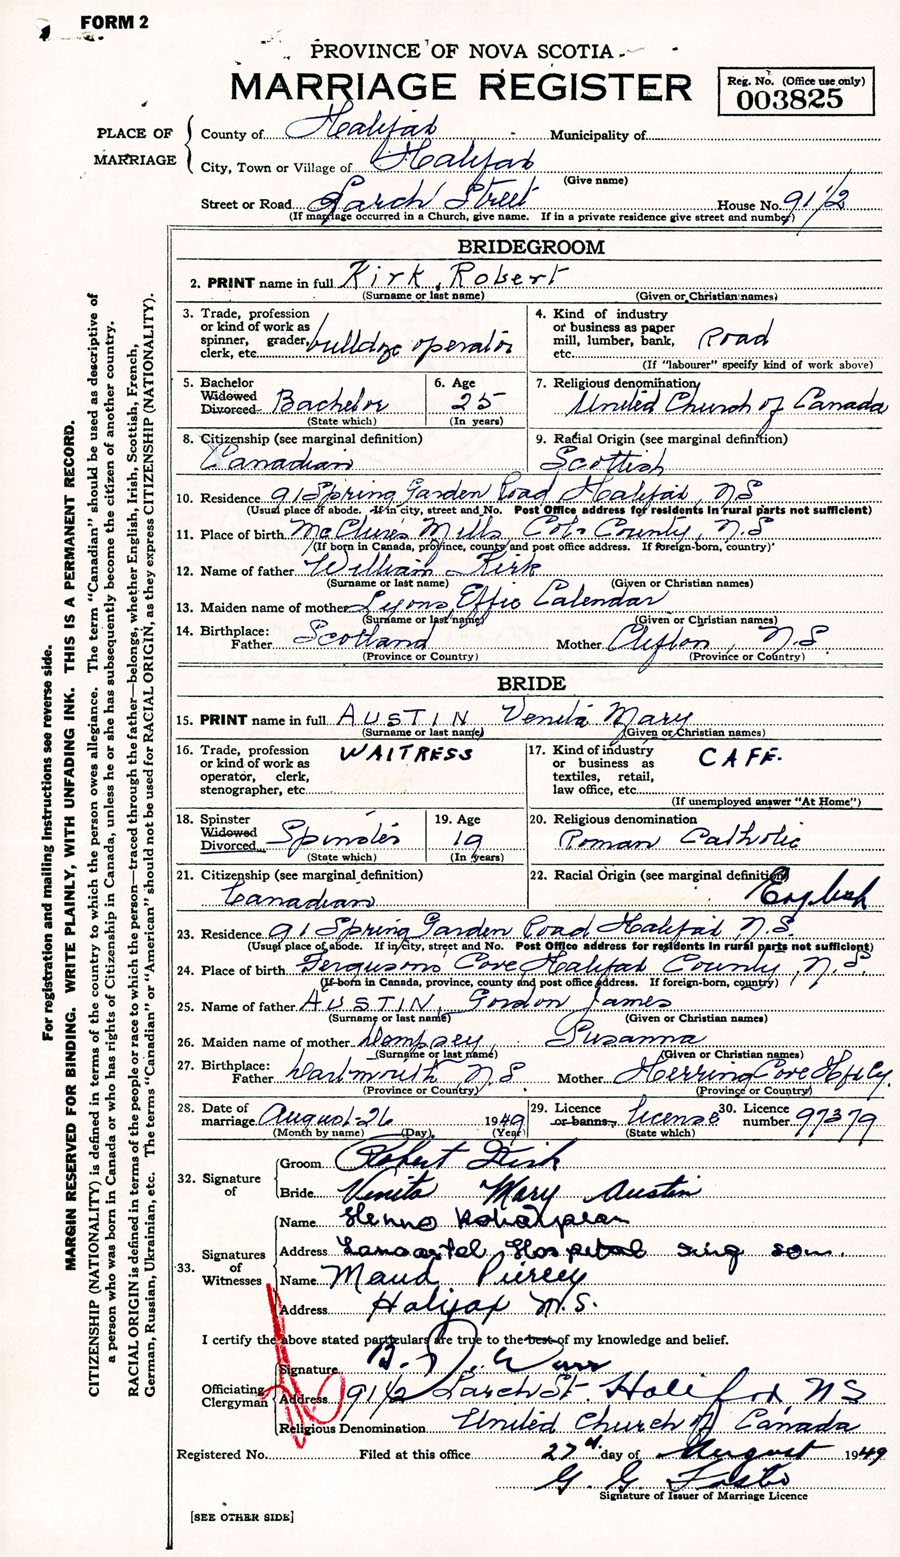 FORM 2
PROVINCE OF NOVA SCOTIA
MARRIAGE REGISTER
Reg. No. (Office use only)
003825
PLACE OF MARRIAGE
County of Halifax Municipality of
City, Town or Village of Halifax
(Give name)
Street or Road Larch Street House No. 91 1/2
(If marriage occurred in a Church, give name. If in a private residence give street and number)
BRIDEGROOM
2. PRINT name in full Kirk, Robert
(Surname or last name) (Given or Christian names)
3. Trade, profession or kind of work as spinner, grader, clerk, etc. bulldze operator
4. Kind of industry or business as paper mill, lumber, bank, etc. Road
(If "labourer" specify kind of work above)
5. Bachelor Widowed Divorced Bachelor
(State which)
6. Age 25
(In years)
7. Religious denomination United Church of Canada
8. Citizenship (see marginal definition) Canadian
9. Racial Origin (see marginal definition) Scottish
10. Residence 91 Spring Garden Road Halifax, N S
(Usual place of abode. If in city, street and No. Post Office address for residents in rural parts not sufficient)
11. Place of birth McClure's Mills Col. County, N.S
(If born in Canada, province, county and post office address. If foreign-born, country)
12. Name of father William Kirk
(Surname or last name) (Given or Christian names)
13. Maiden name of mother Lyons, Effie Calendar
(Surname or last name) (Given or Christian names)
14. Birthplace: Father Scotland Mother Clifton, N.S
(Province or Country) (Province or Country)
BRIDE
15. PRINT name in full AUSTIN Venita Mary
(Surname or last name) (Given or Christian names)
16. Trade, profession or kind of work as operator, clerk, stenographer, etc. WAITRESS
17. Kind of industry or business as textiles, retail, law office, etc. CAFE.
(If unemployed answer "At Home")
18. Spinster Widowed Divorced Spinster
(State which)
19. Age 19
(In years)
20. Religious denomination Roman Catholic
21. Citizenship (see marginal definition) Canadian
22. Racial Origin (see marginal definition) English
23. Residence 91 Spring Garden Road Halifax N.S
(Usual place of abode. If in city, street and No. Post Office address for residents in rural parts not sufficient)
24. Place of birth Ferguson's Cove Halifax County, N.S.
(If born in Canada, province, county and post office address. If foreign-born, country)
25. Name of father AUSTIN, Gordon James
(Surname or last name) (Given or Christian names)
26. Maiden name of mother Dempsey, Susanna
(Surname or last name) (Given or Christian names)
27. Birthplace: Father Dartmouth N.S Mother Herring Cove Hfx Cy.
(Province or Country) (Province or Country)
28. Date of marriage August 26 1949
(Month by name) (Day) (Year)
29. Licence or banns License
(State which)
30. Licence number 97379
32. Signature of
Groom Robert Kirk
Bride Venita Mary Austin
33. Signatures of Witnesses
Name
Address Hospital
Name Maud Piercey
Address Halifax N.S.
I certify the above stated particulars are true to the best of my knowledge and belief.
Officiating Clergyman
Signature B.
Address 91 1/2 Larch St. Halifax N S
Religious Denomination United Church of Canada
Registered No. Filed at this office 27th day of August 1949
G. G.
Signature of Issuer of Marriage Licence
[SEE OTHER SIDE]
For registration and mailing instructions see reverse side.
MARGIN RESERVED FOR BINDING. WRITE PLAINLY, WITH UNFADING INK. THIS IS A PERMANENT RECORD.
CITIZENSHIP (NATIONALITY) is defined in terms of the country to which the person owes allegiance. The term "Canadian" should be used as descriptive of
a person who was born in Canada or who has rights of Citizenship in Canada, unless he or she has subsequently become the citizen of another country.
RACIAL ORIGIN is defined in terms of the people or race to which the person—traced through the father—belongs, whether English, Irish, Scottish, French,
German, Russian, Ukrainian, etc. The terms "Canadian" or "American" should not be used for RACIAL ORIGIN, as they express CITIZENSHIP (NATIONALITY).